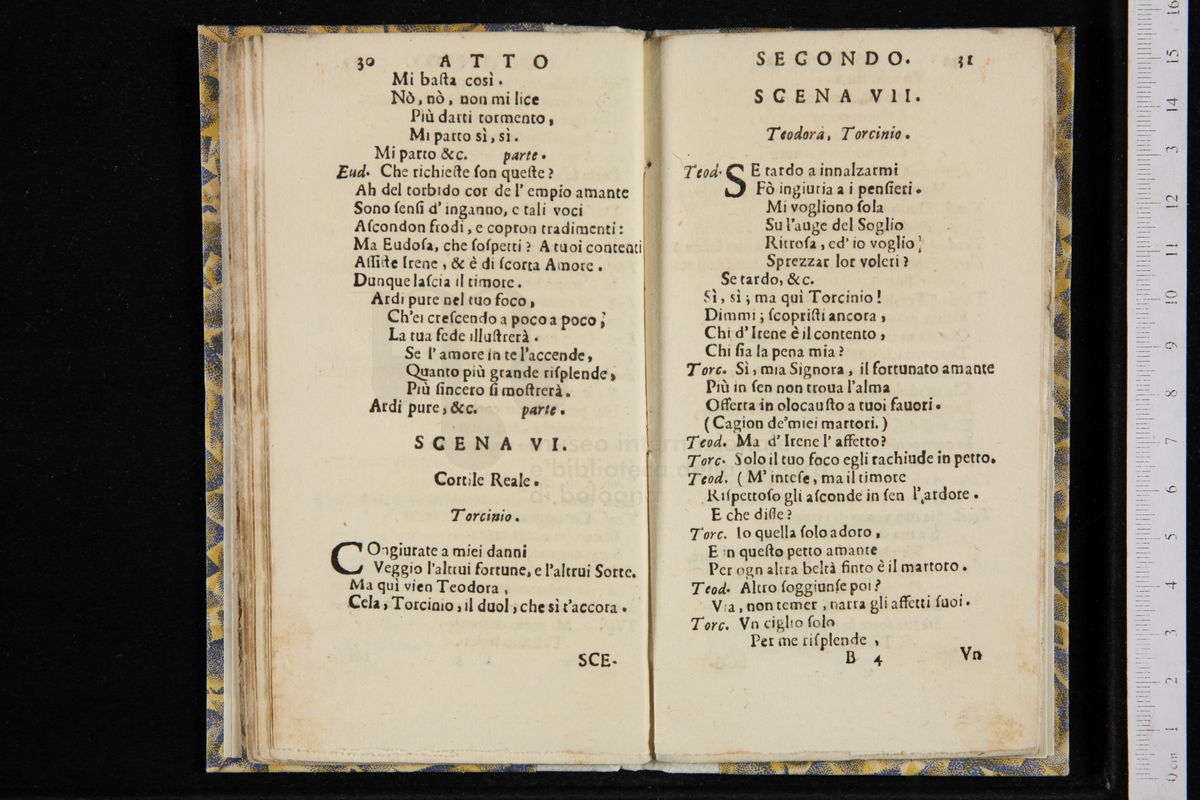 30 ATTO
Mi baſta così.
Nò, nò, non mi lice
Più darti tormento,
Mi parto sì, sì.
Mi parto &c. parte.
Eud. Che richieſte ſon queſte?
Ah del torbido cor de l'empio amante
Sono ſenſi d'inganno, e tali voci
Aſcondon frodi, e copron tradimenti:
Ma Eudoſa, che ſoſpetti? A tuoi contenti
Aſſiſte Irene, & è di ſcorta Amore.
Dunque laſcia il timore.
Ardi pure nel tuo foco,
Ch'ei creſcendo a poco a poco;
La tua fede illuſtrerà.
Se l'amore in te l'accende,
Quanto più grande riſplende,
Più ſincero ſi moſtrerà.
Ardi pure, &c. parte.
SCENA VI.
Cortile Reale.
Torcinio.
COngiurate a miei danni
Veggio l'altrui fortune, e l'altrui Sorte.
Ma quì vien Teodora,
Cela, Torcinio, il duol, che sì t'accora.
SCE-
SECONDO. 31
SCENA VII.
Teodora, Torcinio.
Teod. SE tardo a innalzarmi
Fò ingiuria a i penſieri.
Mi vogliono ſola
Su l'auge del Soglio
Ritroſa, ed'io voglio
Sprezzar lor voleri?
Se tardo, &c.
Sì, sì; ma quì Torcinio!
Dimmi; ſcopriſti ancora,
Chi d'Irene è il contento,
Chi ſia la pena mia?
Torc. Sì, mia Signora, il fortunato amante
Più in ſen non troua l'alma
Offerta in olocauſto a tuoi fauori.
(Cagion de'miei martori.)
Teod. Ma d'Irene l'affetto?
Torc. Solo il tuo foco egli rachiude in petto.
Teod. (M'inteſe, ma il timore
Riſpettoſo gli aſconde in ſen l'ardore.
E che diſſe?
Torc. Io quella ſolo adoro,
E in queſto petto amante
Per ogn altra beltà finto è il martoro.
Teod. Altro ſoggiunſe poi?
Via, non temer, narra gli affetti ſuoi.
Torc. Vn ciglio ſolo
Per me riſplende,
B 4 Vn
museo inter
e biblioteca
di bologna
0 cm 1 2 3 4 5 6 7 8 9 10 11 12 3 14 15 16